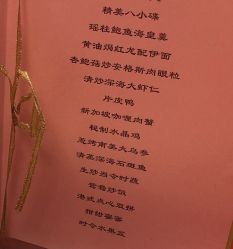 精美八小碟
瑶柱鲍鱼海皇羹
黄油焗红龙配伊面
杏鲍菇炒安格斯肉眼粒
清炒深海大虾仁
片皮鸭
新加坡咖喱肉蟹
秘制水晶鸡
葱烤南美大乌参
清蒸深海石斑鱼
生炒当令时蔬
鸳鸯炒饭
港式点心双拼
甜甜蜜蜜
时令水果盆